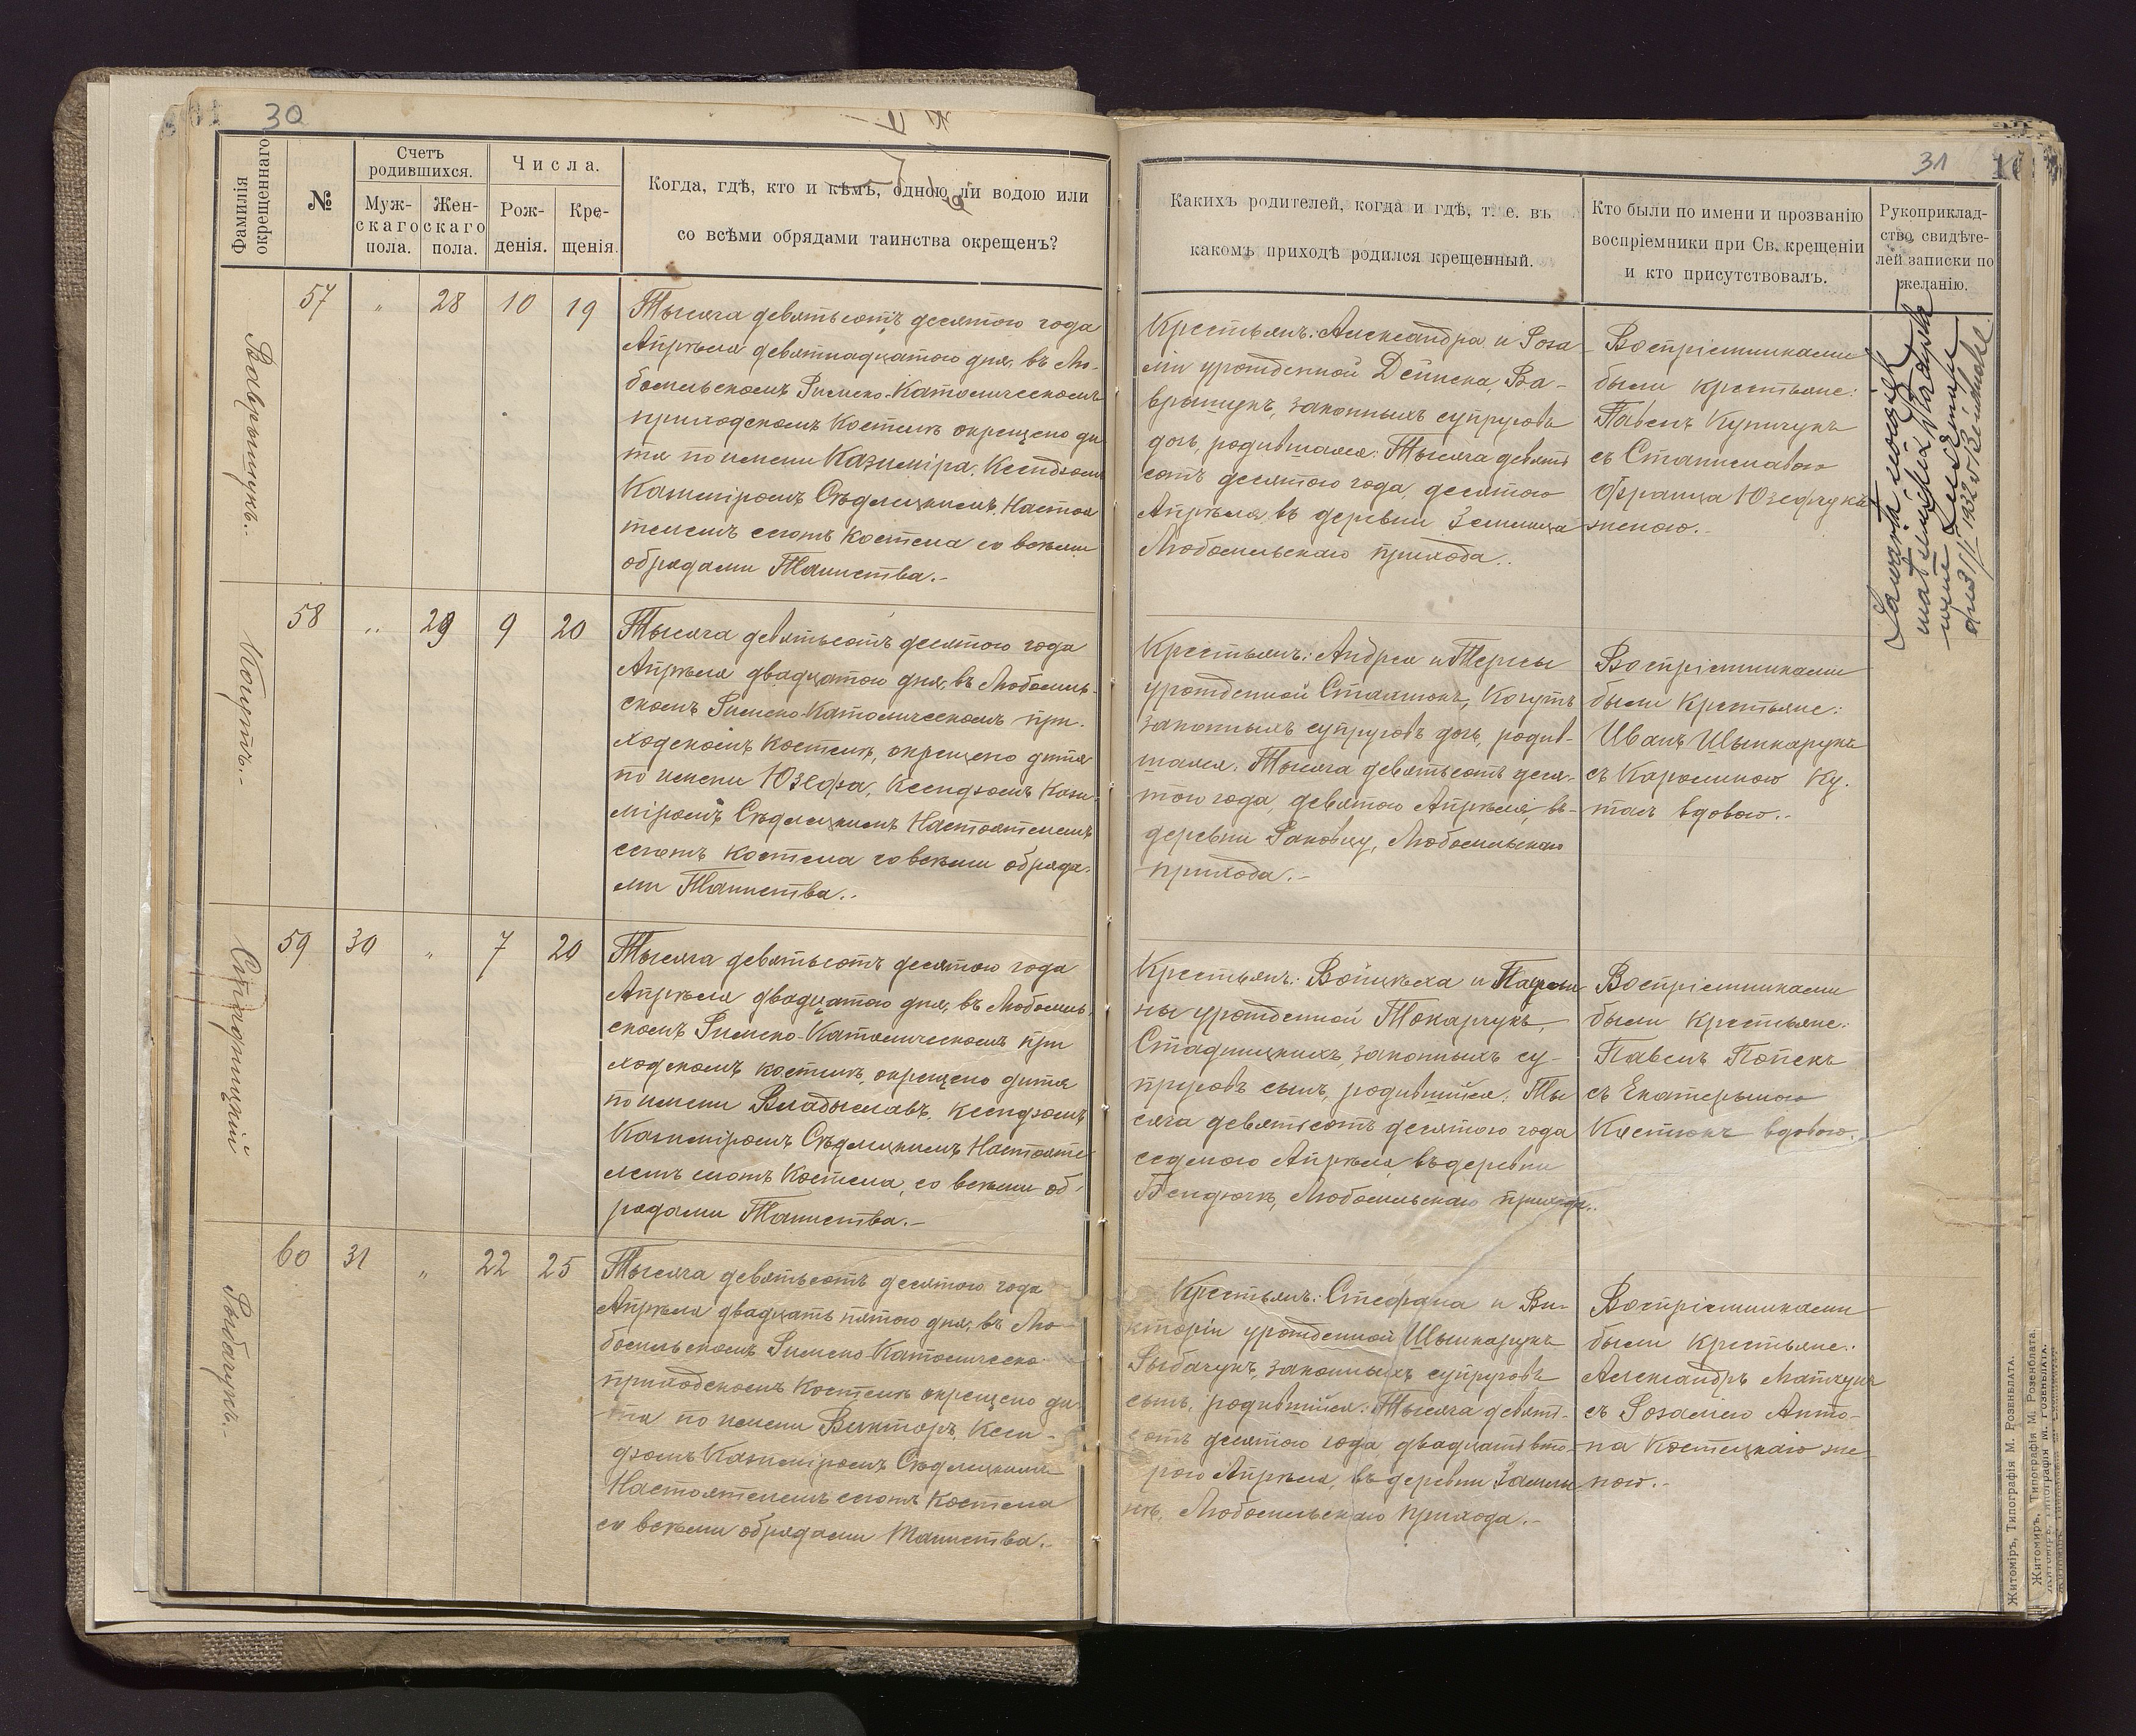 30
Фамилія окрещеннаго
№
Счетъ родившихся.
Муж-скаго пола.
Жен-скаго пола.
Числа.
Рож-денія.
Кре-щенія.
Когда, гдѣ, кто и кѣмъ, одною ли водою или
со всѣми обрядами таинства окрещенъ?
Вавръшукъ.
57 „ 28 10 19
Тысяча девятьсотъ десятого года
Апрѣля девятнадцатого дня, въ Лю-
бомльскомъ Римско-Католическомъ
приходскомъ Костелѣ окрещено ди-
тя по имени Казиміра, Ксендзомъ
Казиміромъ Сѣдлецкимъ, Настоя
телемъ сего Костела со всѣми
обрядами Таинства.-
Когутъ.-
58 „ 29 9 20
Тысяча девятьсотъ десятого года
Апрѣля двадцатого дня, въ Любомль-
скомъ Римско-Католическомъ при-
ходскомъ Костелѣ, окрещено дитя
по имени Юзефа, Ксендзомъ Кази-
міромъ Сѣдлецкимъ Настоятелемъ
Костела со всѣми обряда-
ми Таинства.-
Стадницкій
59 30 „ 7 20
Тысяча девятьсотъ десятого года
Апрѣля двадцатого дня, въ Любомль-
скомъ Римско-Католическомъ при
ходскомъ костелѣ, окрещено дитя
по имени Владыславъ, Ксендзомъ
Казиміромъ Сѣдлецкимъ Настояте
лемъ Костела, со всѣми об-
рядами Таинства.-
Рыбачукъ.-
60 31 „ 22 25
Тысяча девятьсотъ десятого года
Апрѣля двадцать пятого дня, въ Лю-
бомльскомъ Римско-Католическо-
приходскомъ Костелѣ окрещено ди-
тя по имени Викторъ, Ксен-
дзомъ Казиміромъ Сѣдлецкимъ
Настоятелемъ Костела
со всѣми обрядами Таинства.-
31
Какихъ родителей, когда и гдѣ, т. е. въ
какомъ приходѣ родился крещенный.
Кто были по имени и прозванію
воспріемники при Св. крещеніи
и кто присутствовалъ.
Рукоприклад-
ство свидѣте-
лей записки по
желанію.
Крестьянъ: Александра и Роза-
ліи урожденной Дейнека, Ва-
врышукъ, законныхъ супруговъ
дочь, родившаяся: Тысяча девять
сотъ десятого года, десятого
Апрѣля, въ деревни Землица
Любомльскаго прихода..
Воспріемниками
были крестьяне:
Павелъ Купчукъ
съ Станиславою
Францa Юзефчукъ
женою.-
Крестьянъ: Андрея и Тересы
урожденной Сташюкъ, Когутъ
законныхъ супруговъ дочь, родив-
шаяся: Тысяча девятьсотъ деся-
того года, девятого Апрѣля, въ-
деревни Раковцу, Любомльскаго
прихода.-
Воспріемниками
были Крестьяне:
Иванъ Шышкарукъ
съ Каролиною Ку-
вдовою.-
Крестьянъ: Войцѣха и
ны урожденной Токарчукъ,
Стадницкихъ, законныхъ су-
пруговъ сынъ, родившійся: Ты
сяча девятьсотъ десятого года
седмого Апрѣля, въ деревни
Бендюгѣ, Любомльскаго прихода..
Воспріемниками
были Крестьяне:
Павелъ Попекъ
съ Екатерыною
Костюкъ вдовою.-
Крестьянъ: Стефана и Ви-
кторіи урожденной Шышкарукъ
Рыбачукъ, законныхъ супруговъ
сынъ, родившійся: Тысяча девять-
сотъ десятого года двадцать вто-
рого Апрѣля, въ деревни Замлы
нѣ, Любомльскаго прихода.-
Воспріемниками
были крестьяне:
Александръ Матчукъ
съ Розаліею Анто-
на Костецкаго же-
ною.-
Житоміръ, Типографія М. Розенблата.
Житомиръ, Типографія М. Розенблата.